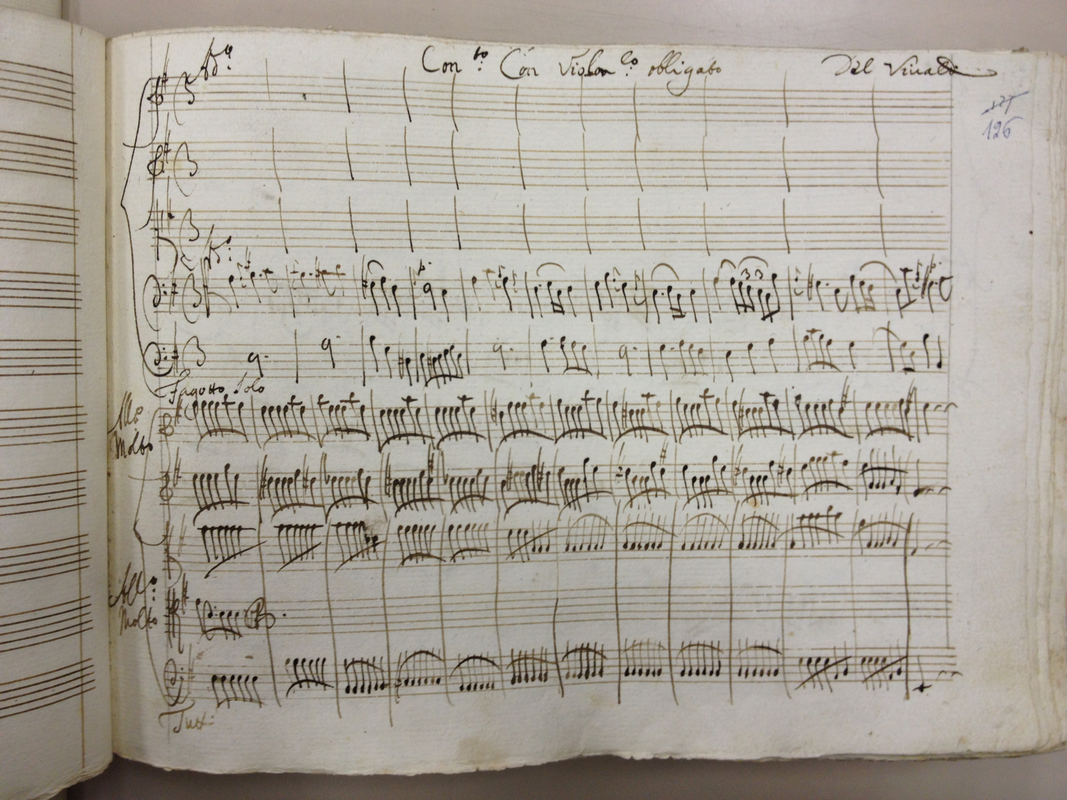 Ad.º Con.to Con Violon.lo obligato Del Vivaldi
126
Fagotto Solo
All.o
Molto
All.o
Molto
Tutti